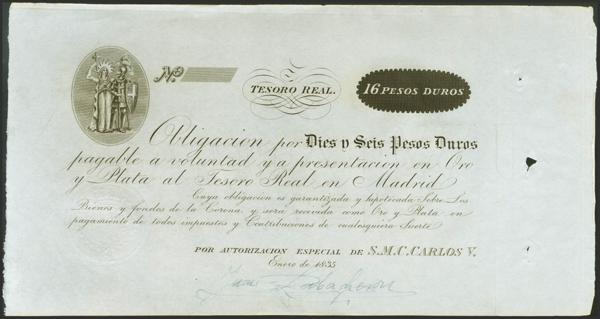 Nº.
TESORO REAL.
16 PESOS DUROS
Obligacion por Dies y Seis Pesos Duros
pagable a voluntad y a presentacion en Oro
y Plata al Tesoro Real en Madrid
Cuya obligacion es garantizada y hipotecada Sobre Los
Bienes y fondos de la Corona y será recivida como Oro y Plata en
pagamiento de todos impuestos y Contribuciones de cualesquiera Suerte
POR AUTORIZACION ESPECIAL DE S.M.C. CARLOS V.
Enero de 1835